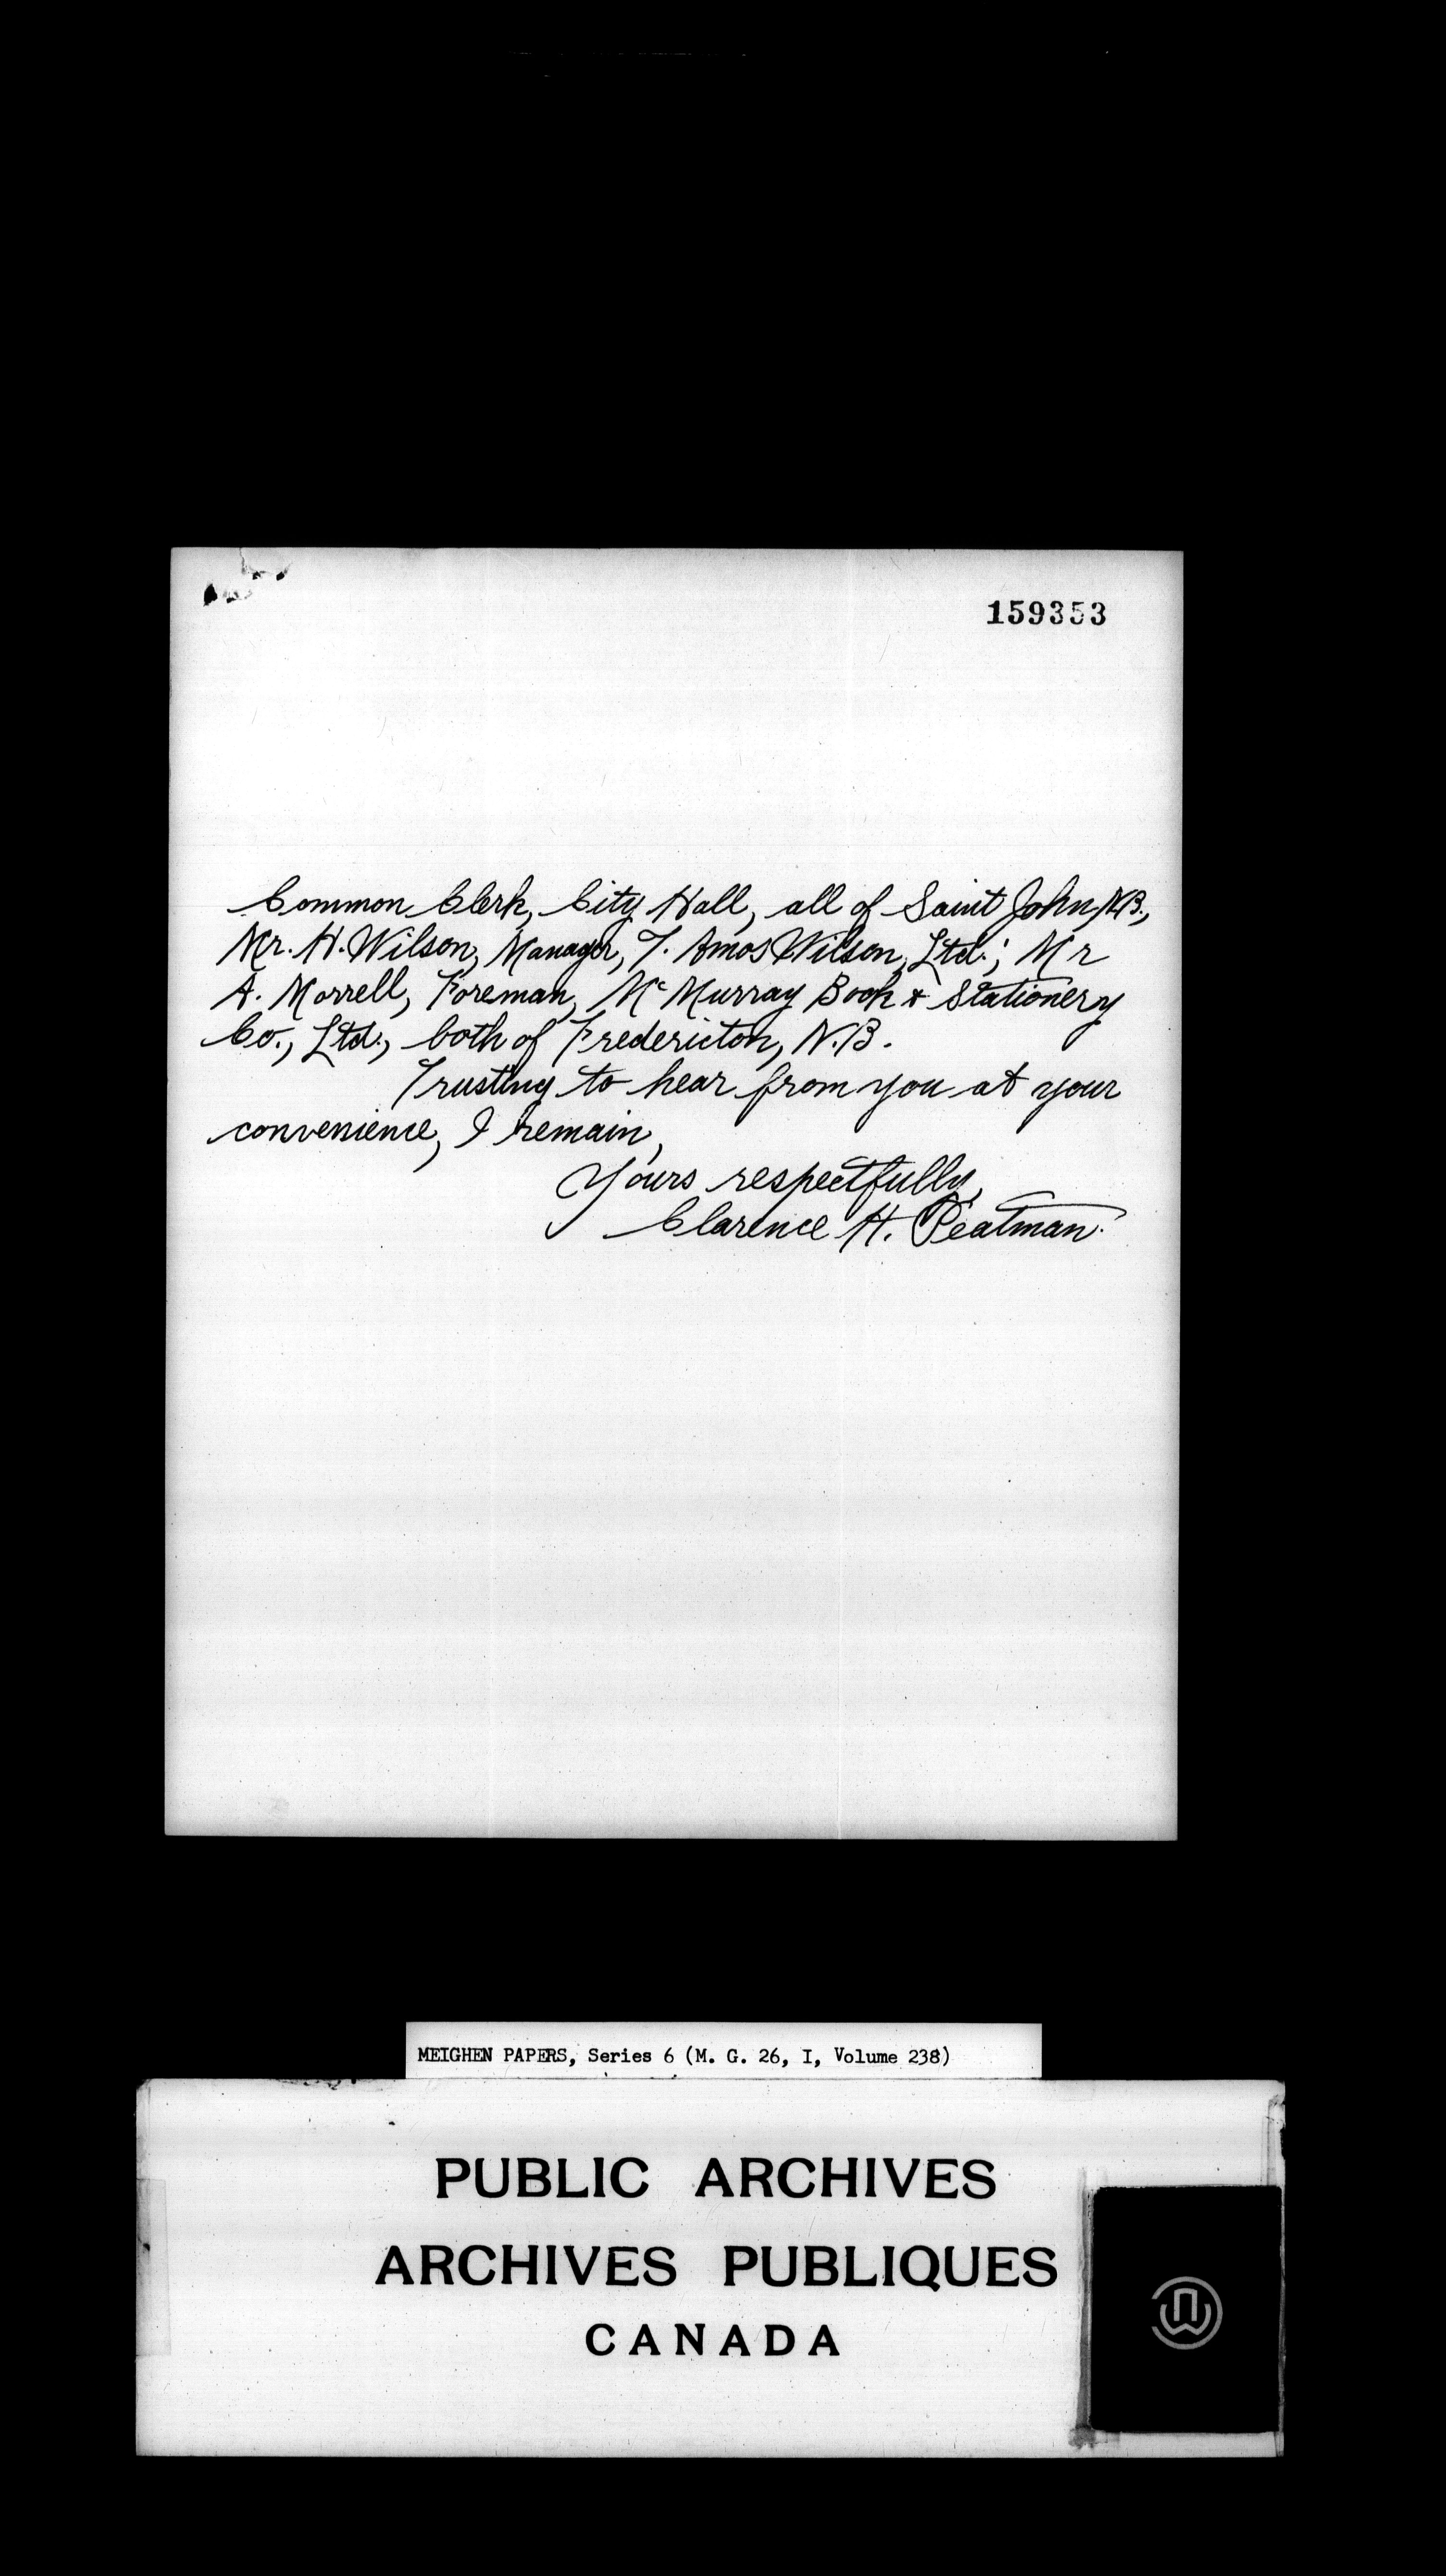 159353
Common Clerk, City Hall, all of Saint John, N.B.,
Mr. H. Wilson, Manager, T. Amos Wilson, Ltd.; Mr
A. Morrell, Foreman, Mc Murray Book & Stationery
Co., Ltd., both of Fredericton, N.B.
Trusting to hear from you at your
convenience, I remain,
Yours respectfully,
Clarence H. Peatman.
MEIGHEN PAPERS, Series 6 (M. G. 26, I, Volume 238)
PUBLIC ARCHIVES
ARCHIVES PUBLIQUES
CANADA